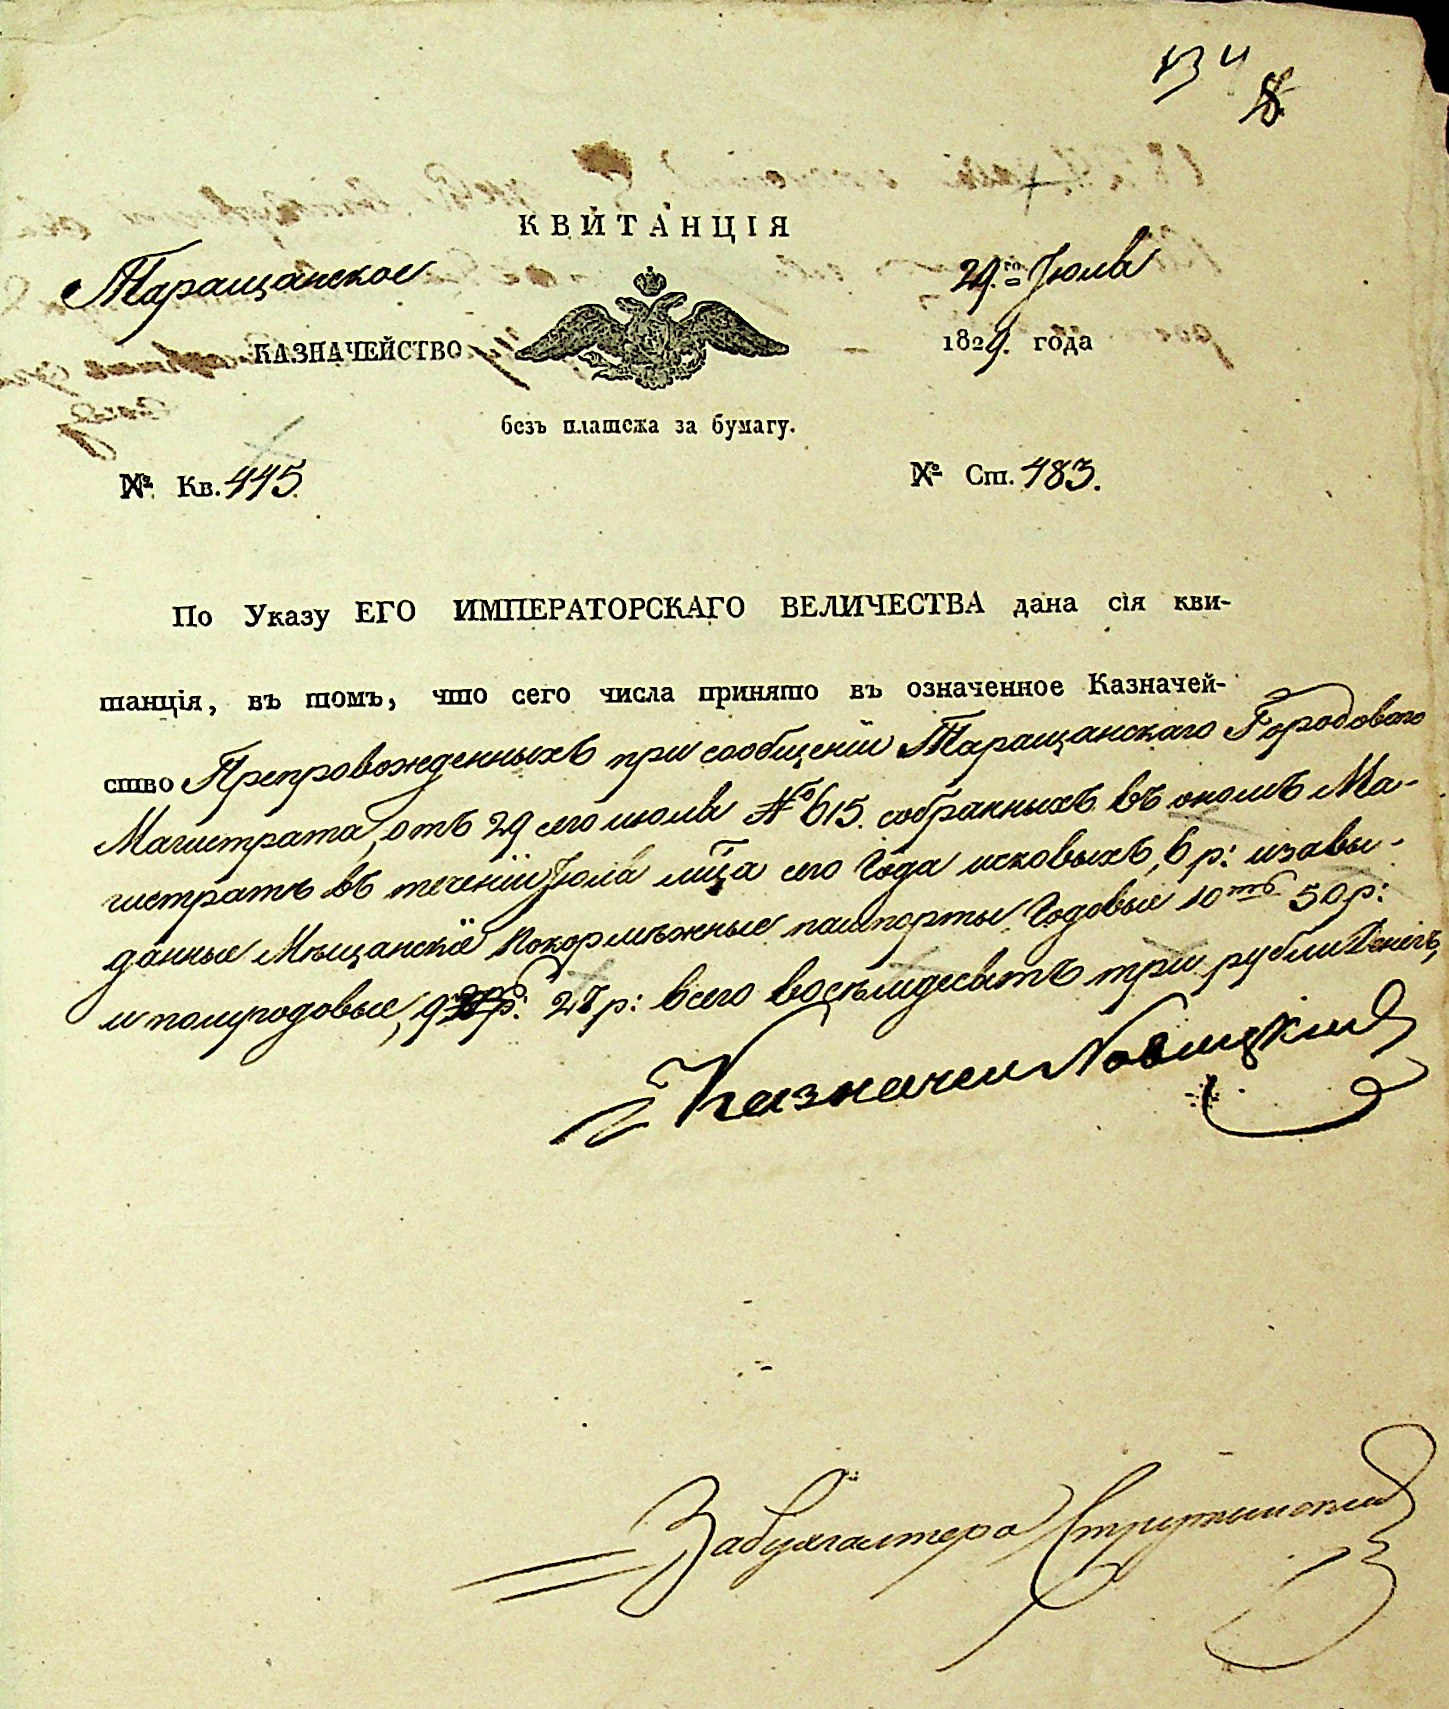 КВИТАНЦІЯ
Таращанское
29.го Іюля
КАЗНАЧЕЙСТВО
1829. года
безъ платежа за бумагу.
№ Кв. 445.
№ Ст. 483.
По Указу ЕГО ИМПЕРАТОРСКАГО ВЕЛИЧЕСТВА дана сія кви-
танція, въ томъ, что сего числа принято въ означенное Казначей-
ство Препровожденныхъ при сообщеніи Таращанскаго Городоваго
Магистрата, отъ 29 сего июля № 615. собранныхъ въ ономъ Ма-
гистратъ въ теченіи Іюля мца сего Года исковыхъ, 6 р: изавы-
данные Мѣщанскіе Покормѣжные пашпорты Годовые 10ть 50 р:
и полугодовые, 9 27 р: всего восемьдесятъ три рубли Денегъ,
Казначеи Новицкий
За бухгалтера Струтинский